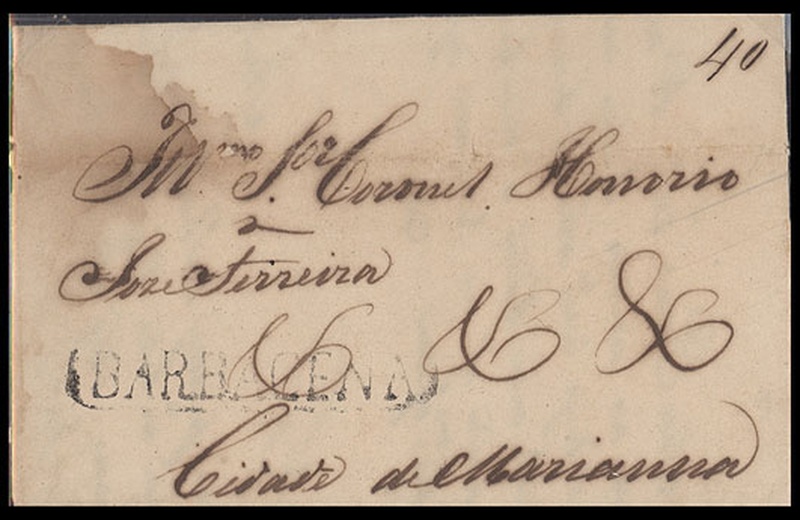 40
Illmo Snor Coronel Honorio
Joze Ferreira
& & &
BARBACENA
Cidade de Marianna